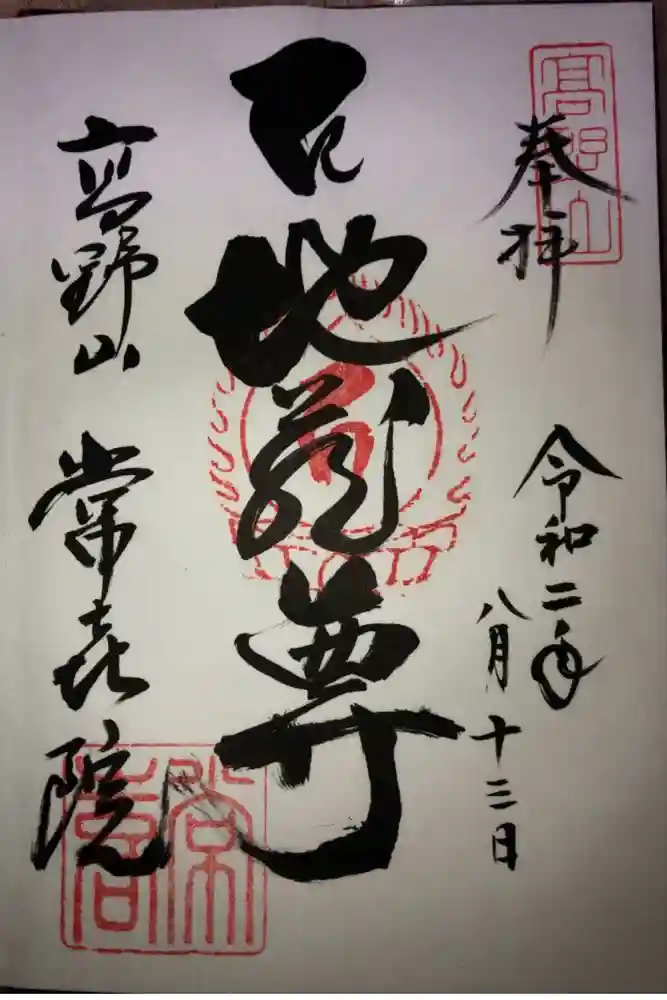 高野山
奉拝
令和二年
八月十三日
地蔵尊
高野山 常喜院